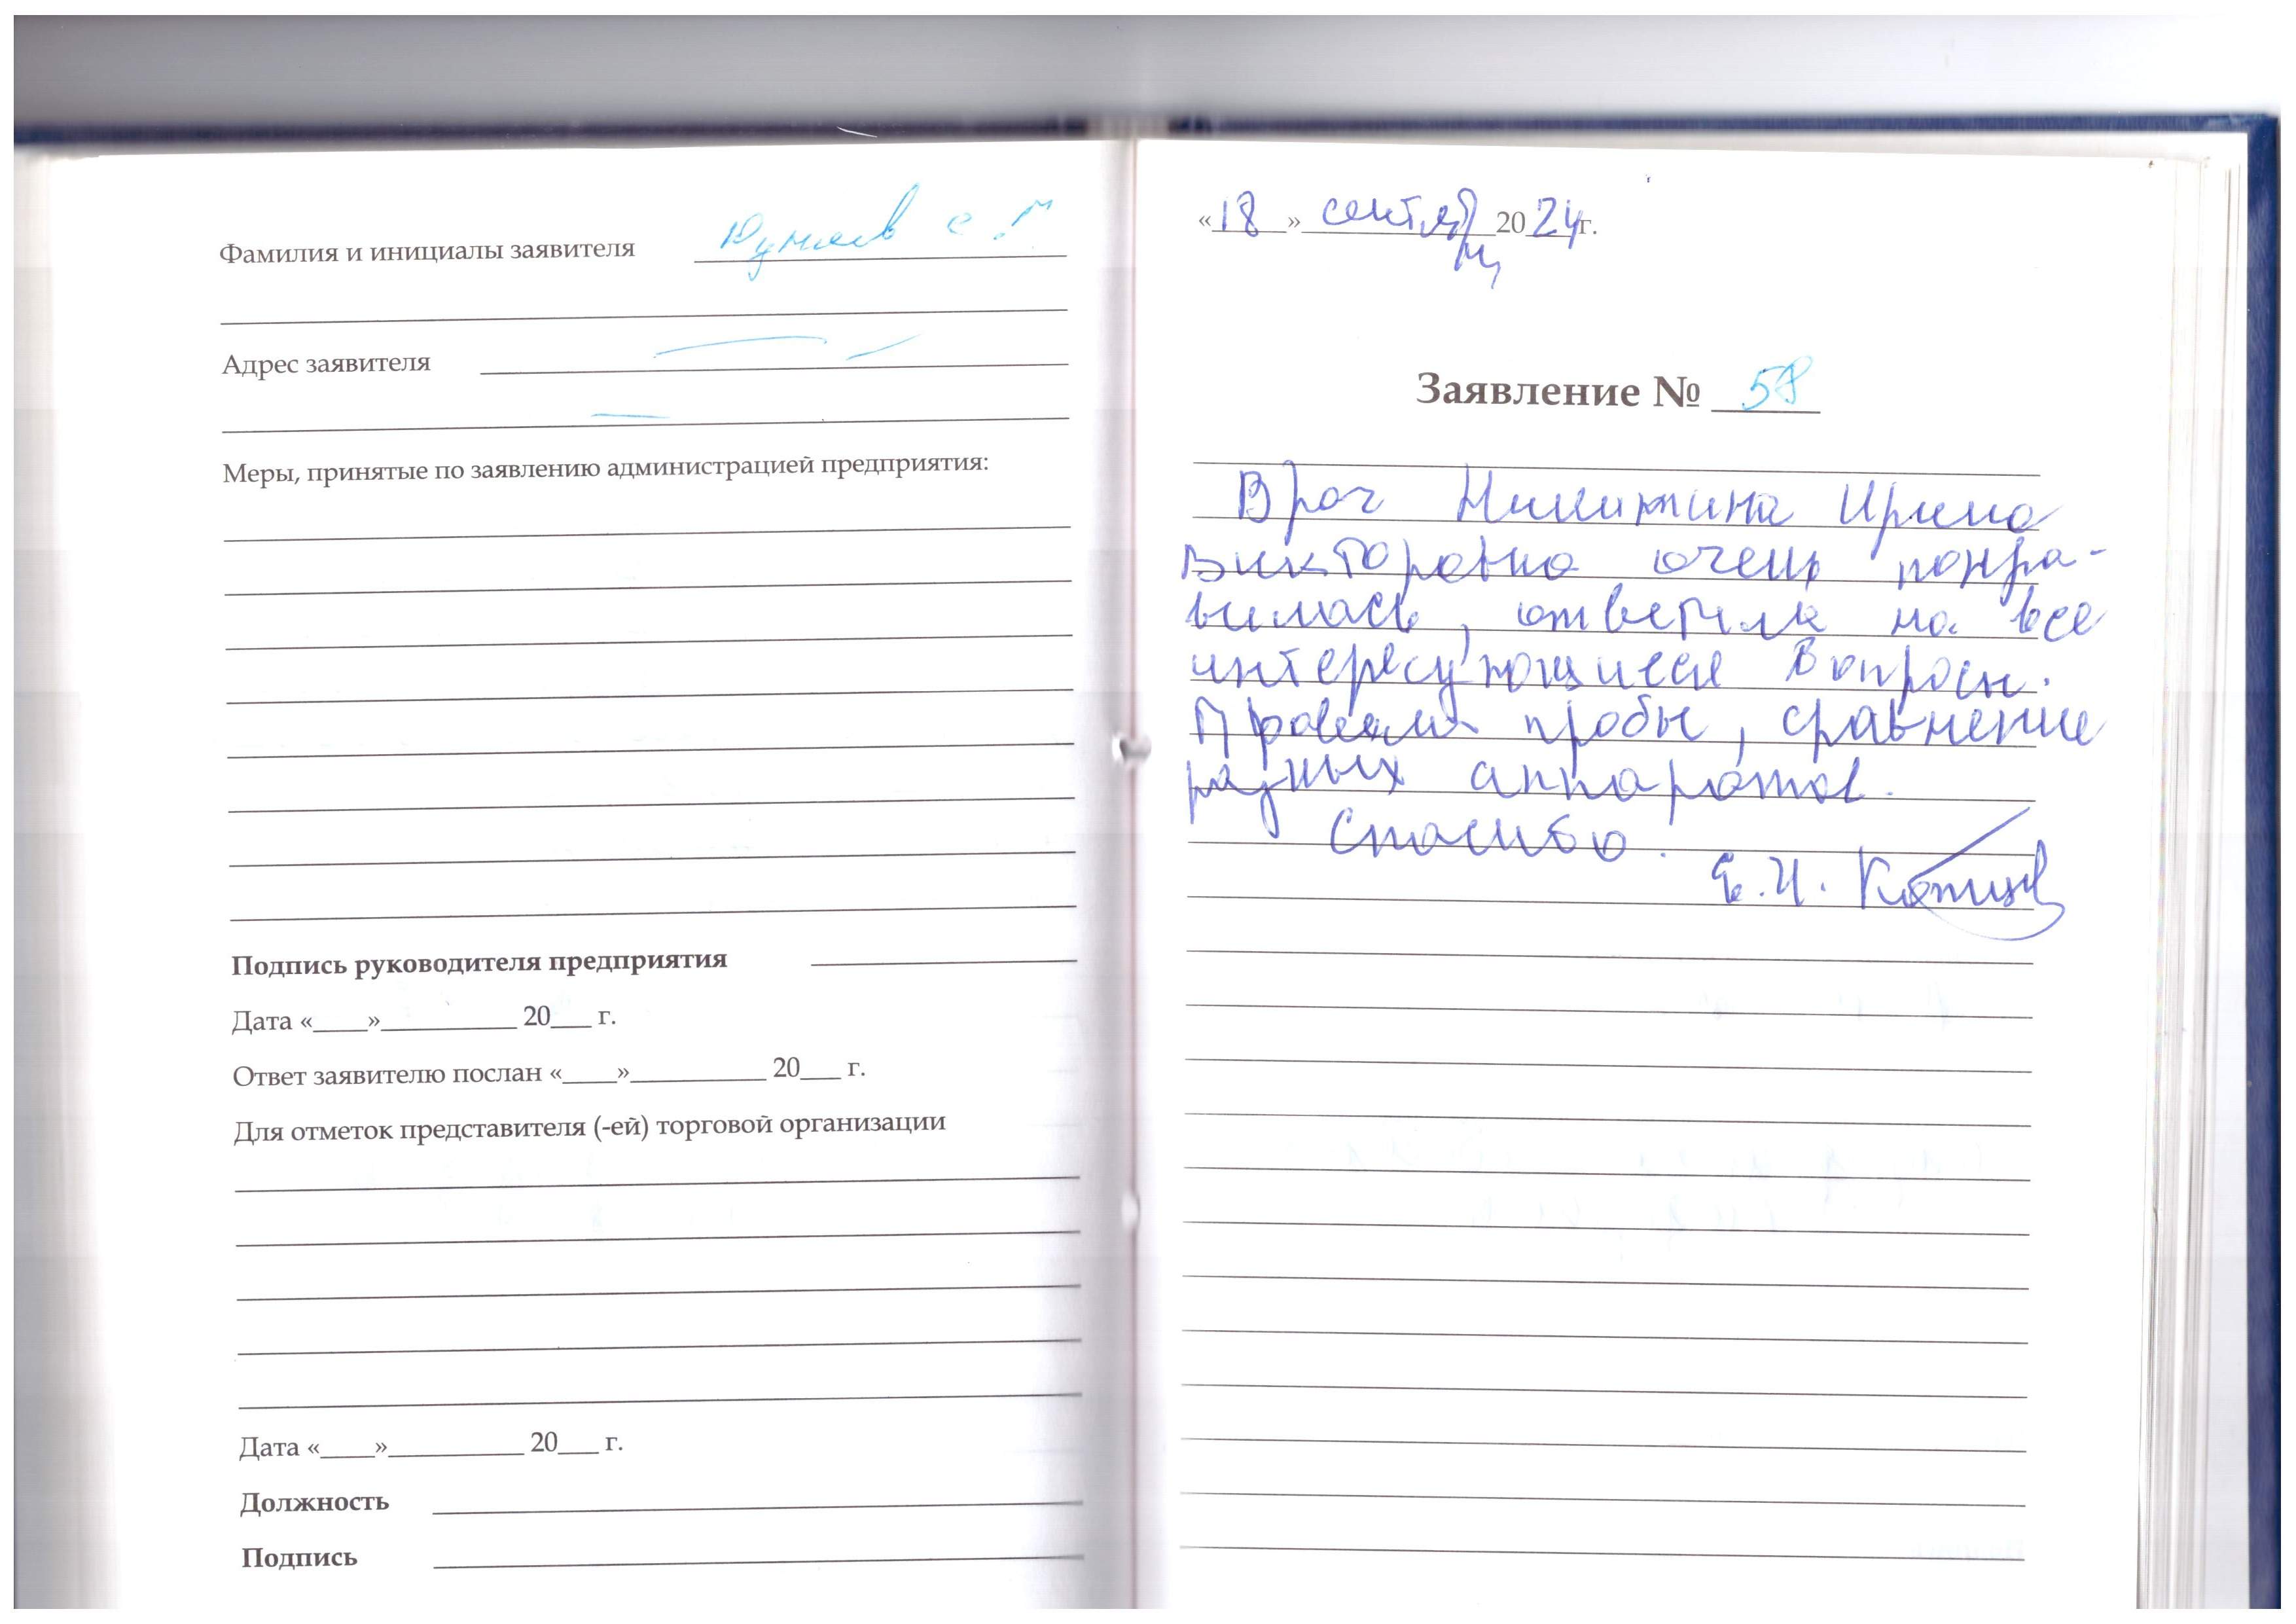 Фамилия и инициалы заявителя
Адрес заявителя
Меры, принятые по заявлению администрацией предприятия:
Подпись руководителя предприятия
Дата «____»__________ 20___ г.
Ответ заявителю послан «____»__________ 20___ г.
Для отметок представителя (-ей) торговой организации
Дата «____»__________ 20___ г.
Должность
Подпись
«18» сентябрь 2024г.
Заявление № 58
Врач Никитина Ирина
Викторовна очень понра-
вилась, ответила на все
интересующиеся вопросы.
Провели пробы, сравнение
разных аппаратов.
Спасибо.
Е.И.